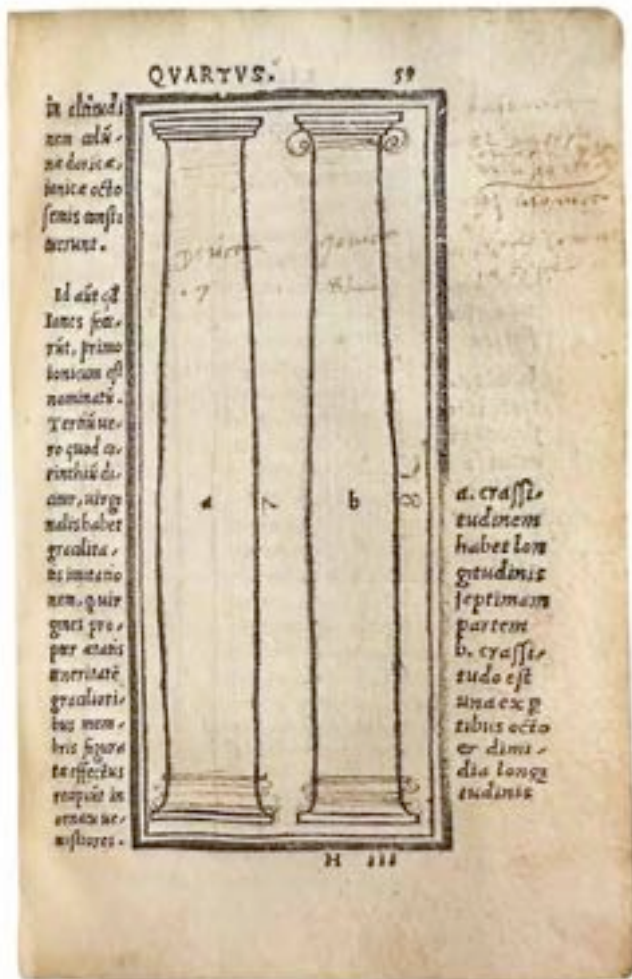 QVARTVS. 59
in altitudi
nem colū-
næ doricæ,
ionicæ octo
semis consti
tuerunt.
Id aūt qđ
Iones fece-
rūt, primo
ionicum est
nominatū.
Tertiū ue-
ro quod co-
rinthiū di-
citur, uirgi
nalis habet
gracilita-
tis imitatio
nem, quir
gines pro-
pter ætatis
teneritatē
graciliori-
bus mem-
bris figura
tæ effectus
recipiūt in
ornatu ue-
nustiores.
Dorica
7
Ionica
8
a
7
b
8
a. crassi-
tudinem
habet lon
gitudinis
septimam
partem
b. crassi-
tudo est
una ex p
tibus octo
et dimi-
dia longi
tudinis
H III